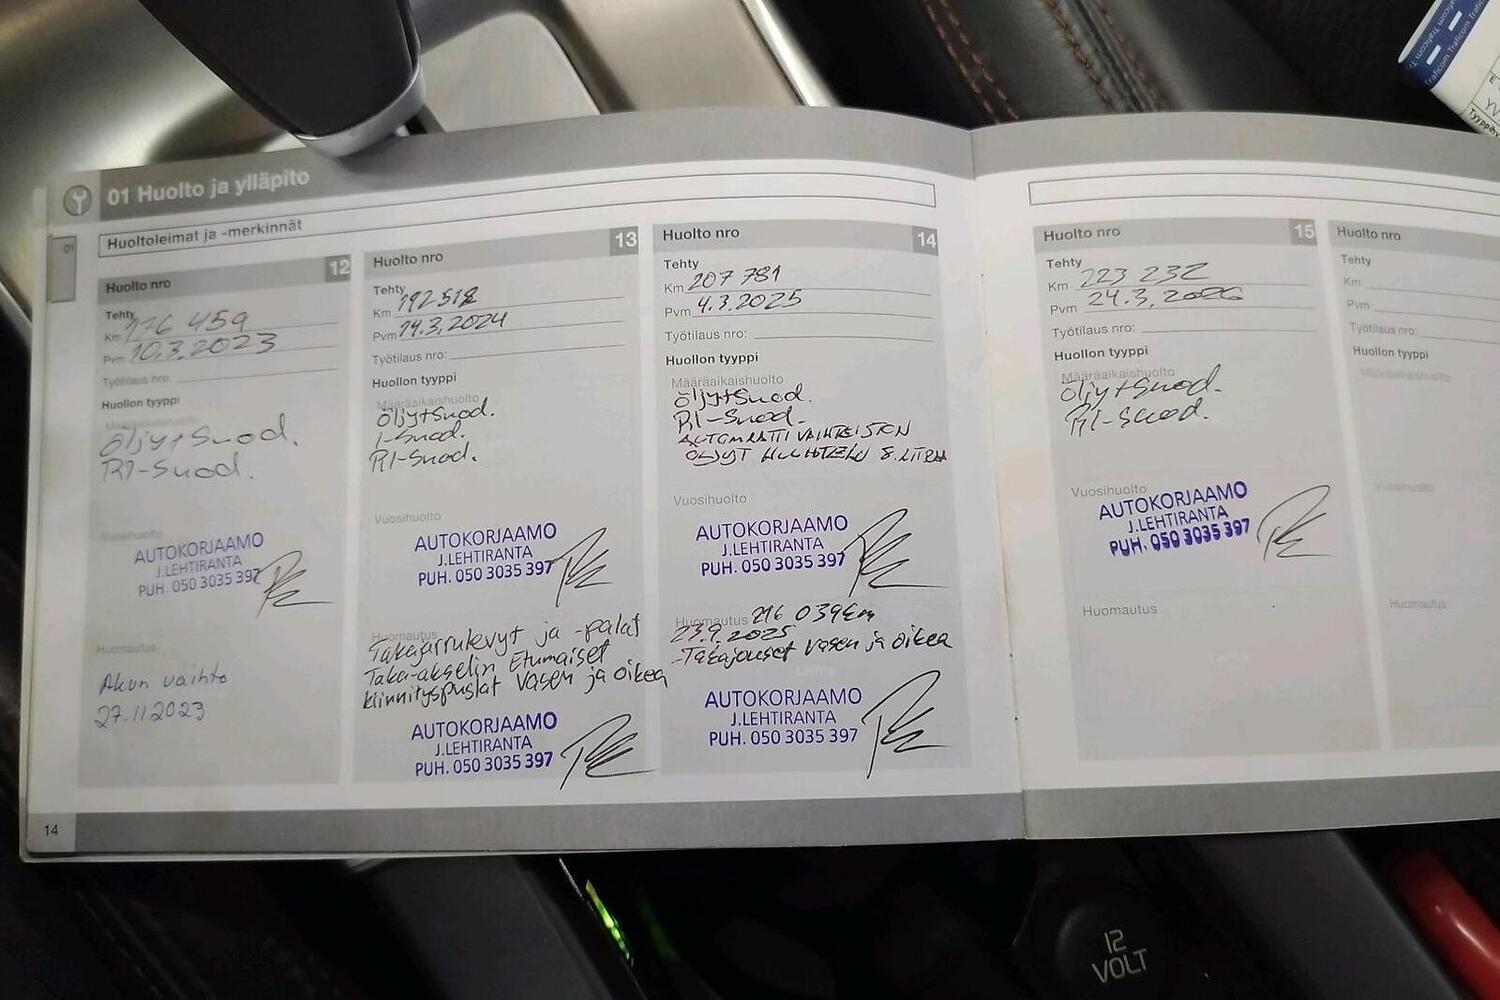 01 Huolto ja ylläpito
01
Huoltoleimat ja -merkinnät
Huolto nro 12
Tehty
Km 176 459
Pvm 10.3.2023
Työtilaus nro:
Huollon tyyppi
Määräaikaishuolto
Öljyt+Suod.
RI-Suod.
Vuosihuolto
AUTOKORJAAMO
J.LEHTIRANTA
PUH. 050 3035 397
Huomautus
Akun vaihto
27.11.2023
14
Huolto nro 13
Tehty
Km 192 518
Pvm 14.3.2024
Työtilaus nro:
Huollon tyyppi
Määräaikaishuolto
Öljyt+Suod.
I-Suod.
RI-Suod.
Vuosihuolto
AUTOKORJAAMO
J.LEHTIRANTA
PUH. 050 3035 397
Huomautus
Takajarrulevyt ja -palat
Taka-akselin Etumaiset
kiinnityspuslat Vasen ja oikea
AUTOKORJAAMO
J.LEHTIRANTA
PUH. 050 3035 397
Huolto nro 14
Tehty
Km 207 781
Pvm 4.3.2025
Työtilaus nro:
Huollon tyyppi
Määräaikaishuolto
Öljyt+Suod.
RI-Suod.
AUTOMAATTI VAIHTEISTON
ÖLJYT HUUHTELU 8. LITRAA
Vuosihuolto
AUTOKORJAAMO
J.LEHTIRANTA
PUH. 050 3035 397
Huomautus 216 039km
23.9.2025
-Takajouset Vasen ja oikea
AUTOKORJAAMO
J.LEHTIRANTA
PUH. 050 3035 397
Huolto nro 15
Tehty
Km 223 232
Pvm 24.3.2026
Työtilaus nro:
Huollon tyyppi
Määräaikaishuolto
Öljyt+Suod.
RI-Suod.
Vuosihuolto
AUTOKORJAAMO
J.LEHTIRANTA
PUH. 050 3035 397
Huomautus
Huolto nro
Tehty
Km
Pvm
Työtilaus nro:
Huollon tyyppi
Määräaikaishuolto
Vuosihuolto
Huomautus
Traficom Traficom
12
VOLT